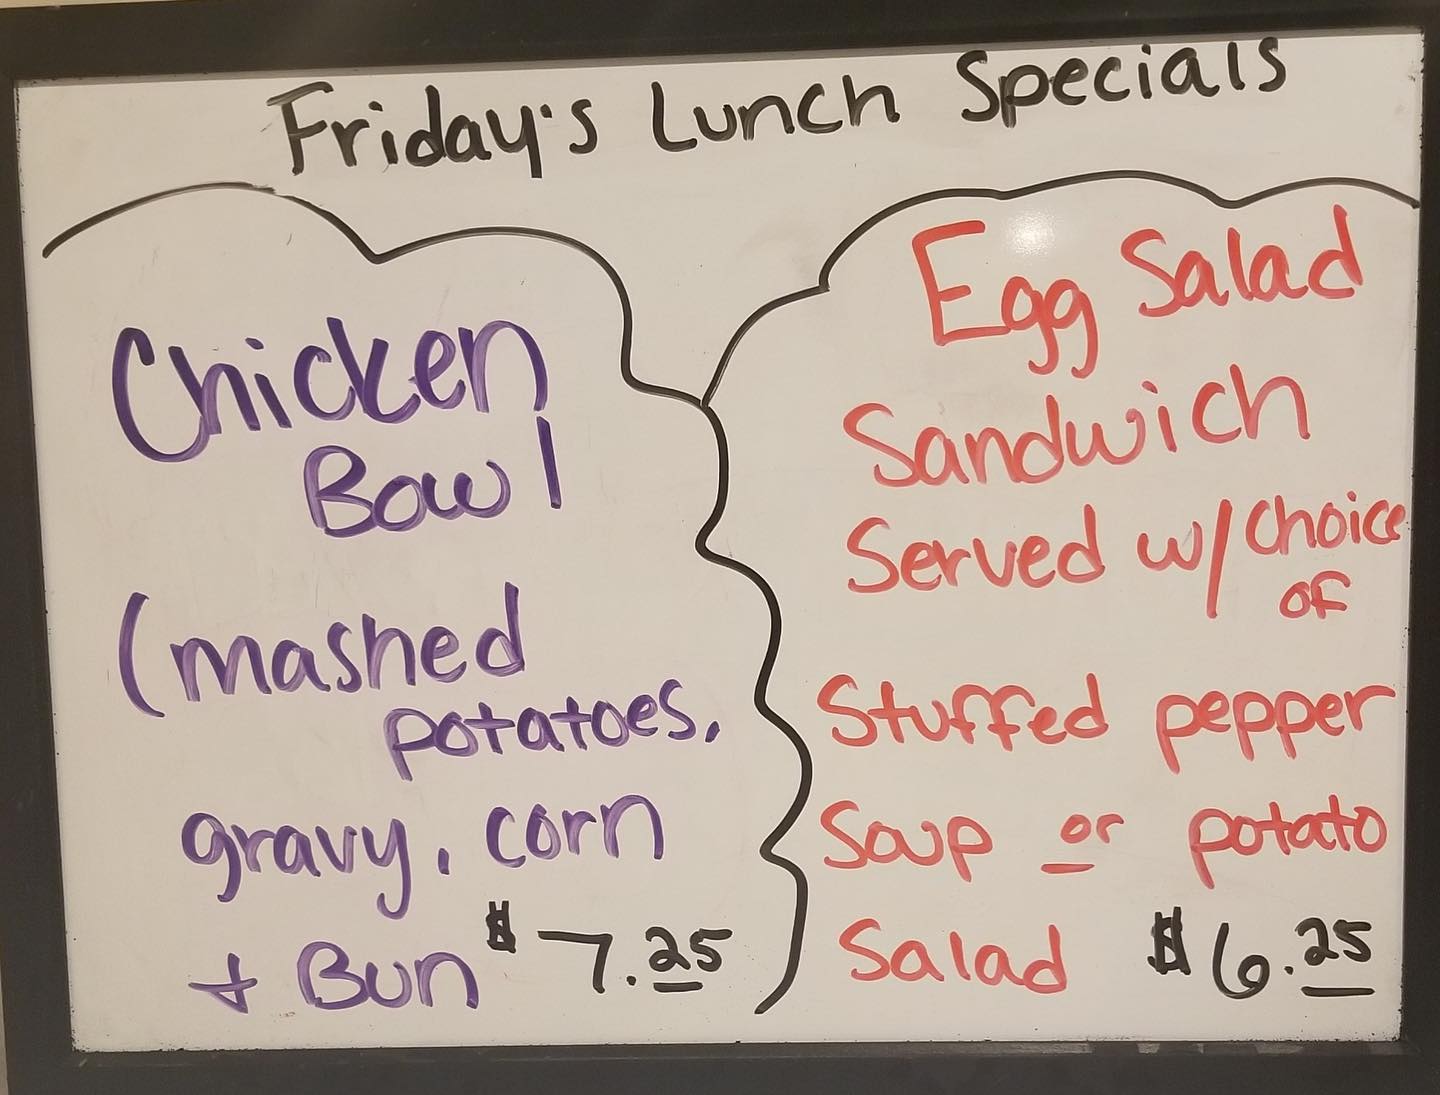 Friday's Lunch Specials
Chicken
Bowl
(mashed
potatoes,
gravy, corn
+ Bun $7.25
Egg Salad
Sandwich
Served w/ choice
of
Stuffed pepper
Soup or potato
Salad $6.25